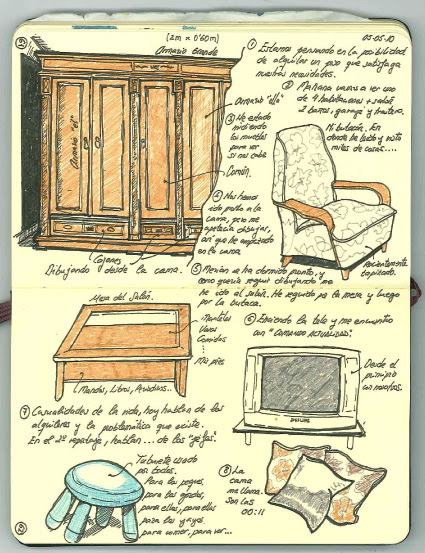 (2m x 0'60m)
Armario grande
05-05-10
① Estamos pensando en la posibilidad
de alquilar un piso que satisfaga
nuestras necesidades.
② Mañana vamos a ver uno
de 4 habitaciones + salón
2 baños, garaje y trastero.
Armario "ella"
Armario "él"
③ He estado
midiendo
los muebles
para ver
si nos cabe
Común.
Mi butacón. En
donde he leído y visto
miles de cosas....
④ Nos hemos
ido pronto a la
cama, pero me
apetecía dibujar,
así que he empezado
en la cama
Cajones
Dibujando desde la cama.
Recientemente
tapizado.
⑤ Merian se ha dormido pronto, y
como quería seguir dibujando me
he ido al salón. He seguido por la mesa y luego
por la butaca.
Mesa del Salón.
Mantelitos
Vasos
Comidas
Mis pies
Mandos, Libros, Periódicos..
⑥ Enciendo la tele y me encuentro
con "COMANDO ACTUALIDAD".
Desde el
principio
con nosotros.
PHILIPS
⑦ Casualidades de la vida, hoy hablan de los
alquileres y la problemática que existe.
En el 2º reportaje, hablan ... de los "yayos".
Taburete usado
por todos.
Para los peques,
para los grandes,
para ellas, para ellos
para los yayos.
para comer, para ver...
⑧ La
cama
me llama.
Son las
00:11